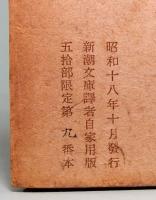 昭和十八年十月發行
新潮文庫譯者自家用版
五拾部限定第九番本